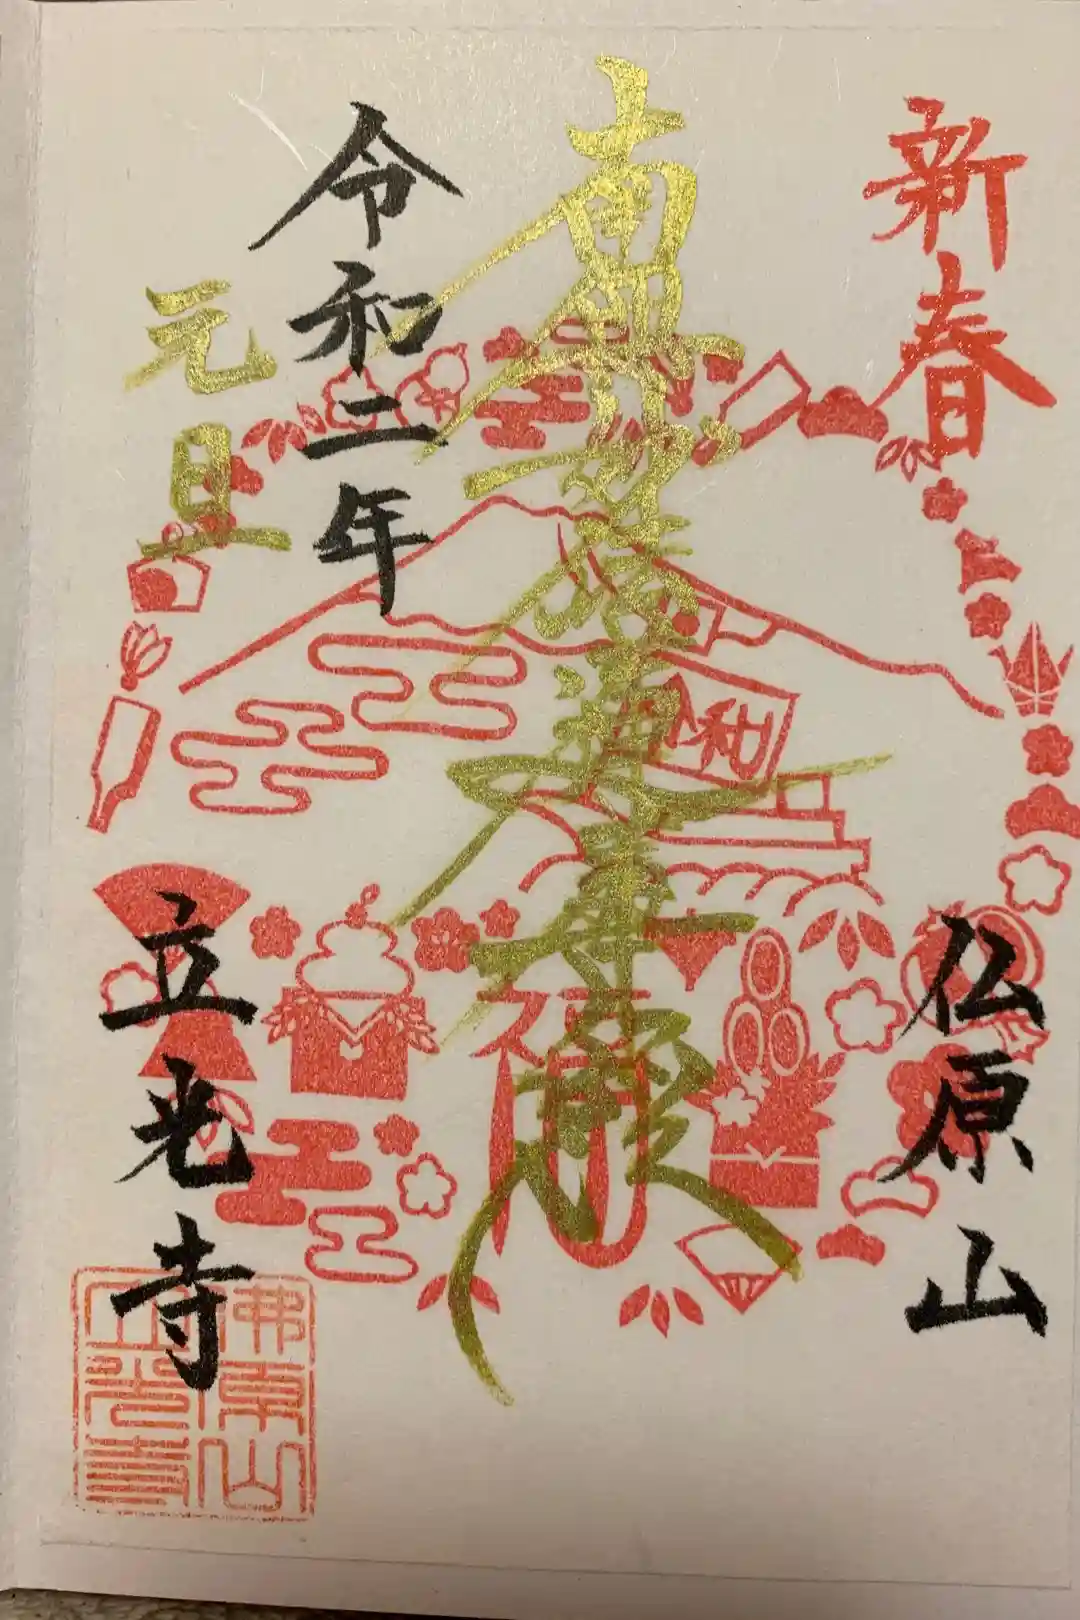 新春
仏原山
南無妙法蓮華経
令和二年
元旦
立光寺
令和
佛原山
立光寺